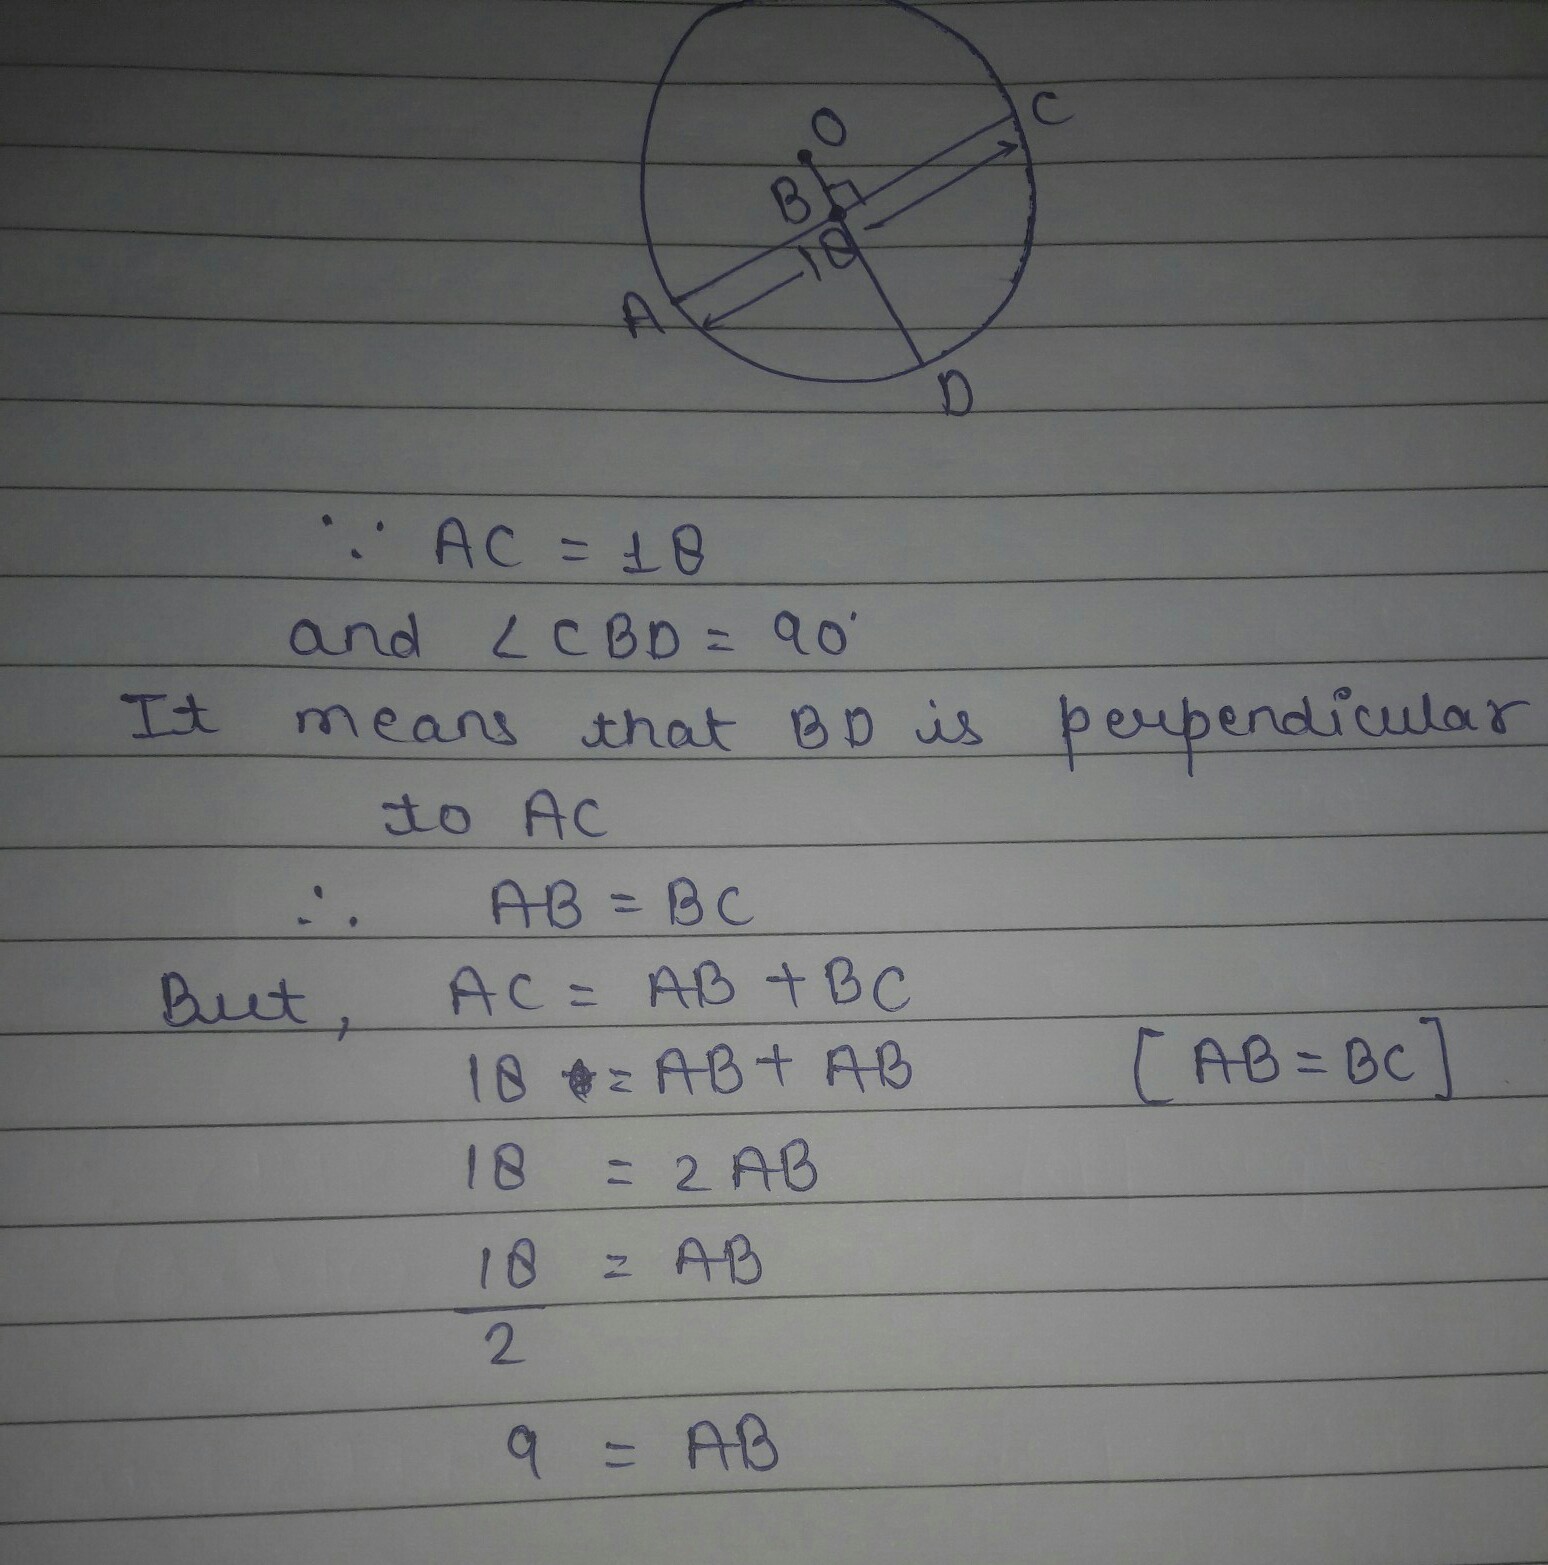 O
C
B
18
A
D
∵ AC = 18
and ∠CBD = 90°
It means that BD is perpendicular
to AC
∴ AB = BC
But, AC = AB + BC
18 = AB + AB [AB = BC]
18 = 2AB
18 = AB
2
9 = AB